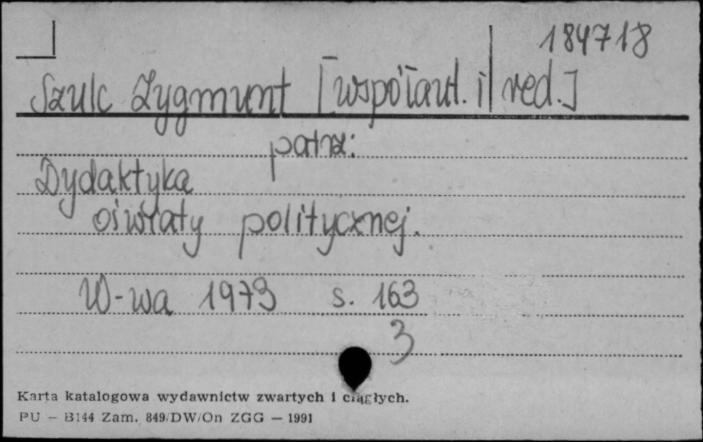 184718
Szulc Zygmunt [współaut. i red.]
patrz:
Dydaktyka
oświaty politycznej.
W-wa 1973 s. 163
3
Karta katalogowa wydawnictw zwartych i ciągłych.
PU — B144 Zam. 849/DW/On ZGG — 1991